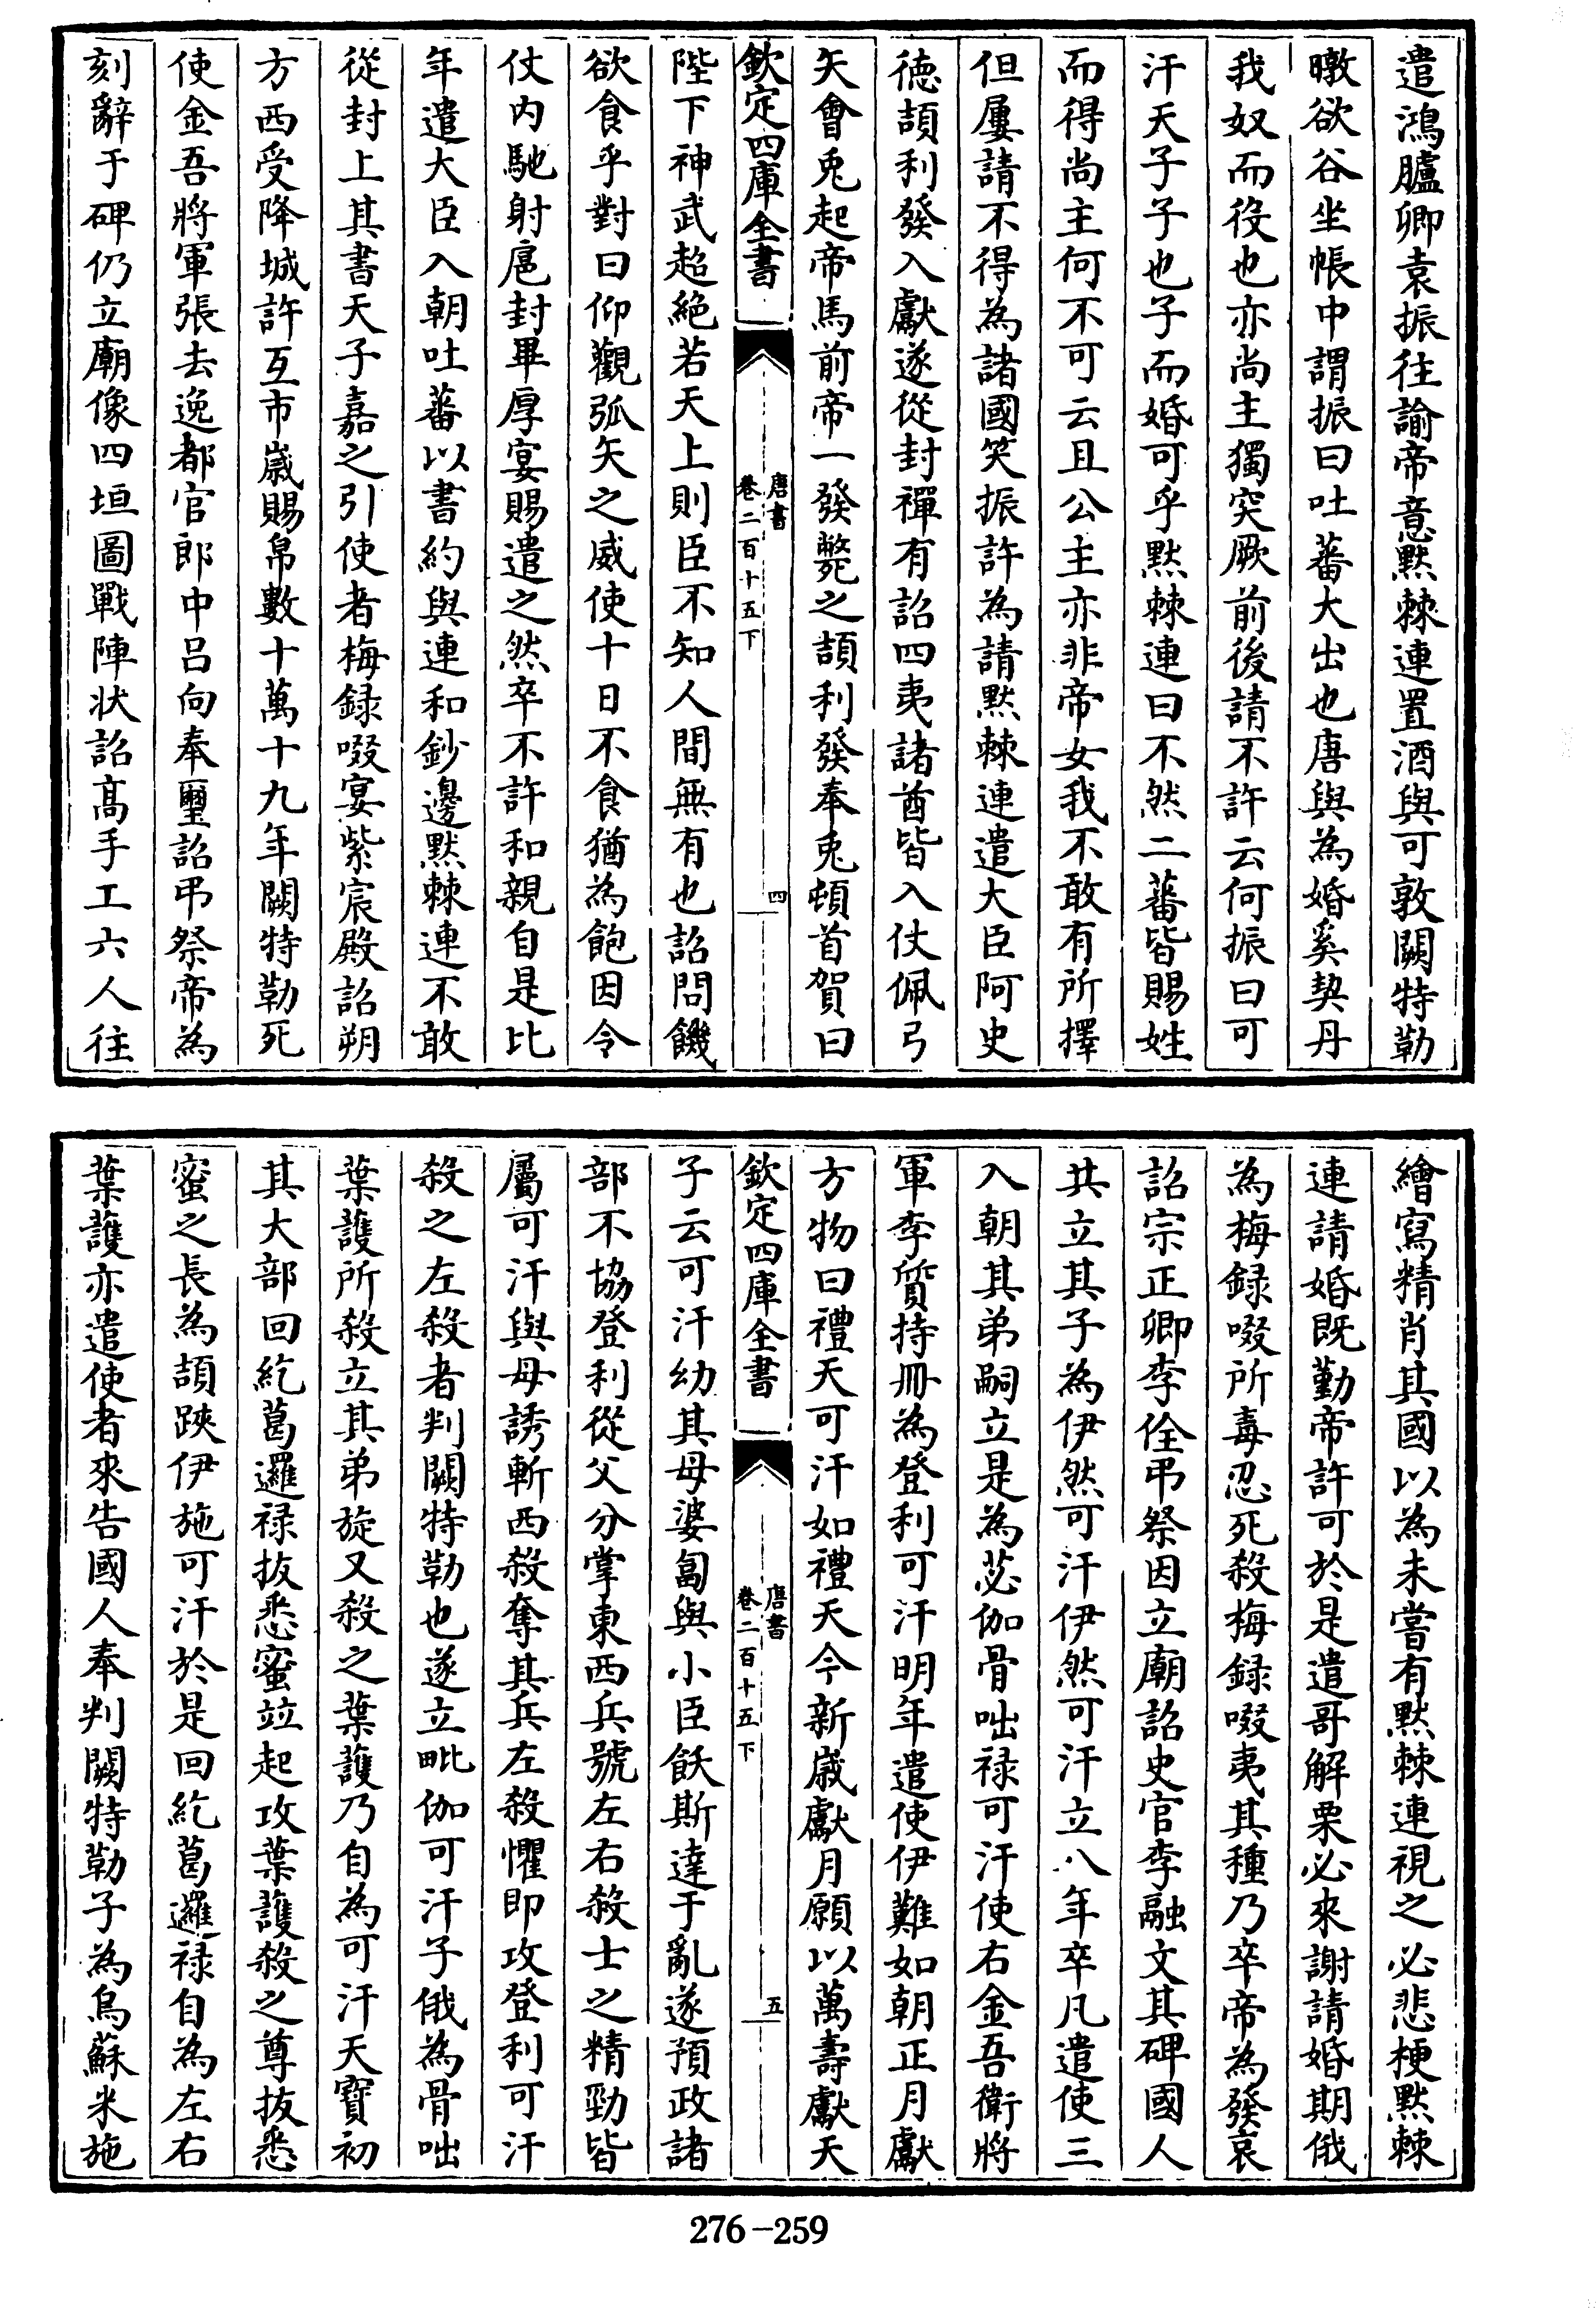 遣鴻臚卿袁振往諭帝意黙棘連置酒與可敦闕特勒
暾欲谷坐帳中謂振曰吐蕃犬出也唐與為婚奚契丹
我奴而役也亦尚主獨突厥前後請不許云何振曰可
汗天子子也子而婚可乎黙棘連曰不然二蕃皆賜姓
而得尚主何不可云且公主亦非帝女我不敢有所擇
但屢請不得為諸國笑振許為請黙棘連遣大臣阿史
徳頡利發入獻遂從封禪有詔四夷諸酋皆入仗佩弓
矢會兎起帝馬前帝一發斃之頡利發奉兎頓首賀曰
欽定四庫全書
唐書
卷二百十五下
四
陛下神武超絶若天上則臣不知人間無有也詔問饑
欲食乎對曰仰觀弧矢之威使十日不食猶為飽因令
仗内馳射扈封畢厚宴賜遣之然卒不許和親自是比
年遣大臣入朝吐蕃以書約與連和鈔邊黙棘連不敢
從封上其書天子嘉之引使者梅録啜宴紫宸殿詔朔
方西受降城許互市歲賜帛數十萬十九年闕特勒死
使金吾將軍張去逸都官郎中吕向奉璽詔弔祭帝為
刻辭于碑仍立廟像四垣圖戰陣状詔髙手工六人往
繪寫精肖其國以為未嘗有黙棘連視之必悲梗黙棘
連請婚既勤帝許可於是遣哥解栗必來謝請婚期俄
為梅録啜所毒忍死殺梅録啜夷其種乃卒帝為發哀
詔宗正卿李佺弔祭因立廟詔史官李融文其碑國人
共立其子為伊然可汗伊然可汗立八年卒凡遣使三
入朝其弟嗣立是為苾伽骨咄禄可汗使右金吾衛將
軍李質持冊為登利可汗明年遣使伊難如朝正月獻
方物曰禮天可汗如禮天今新歲獻月願以萬壽獻天
欽定四庫全書
唐書
卷二百十五下
五
子云可汗幼其母婆匐與小臣飫斯達于亂遂預政諸
部不協登利從父分掌東西兵號左右殺士之精勁皆
屬可汗與母誘斬西殺奪其兵左殺懼即攻登利可汗
殺之左殺者判闕特勒也遂立毗伽可汗子俄為骨咄
葉護所殺立其弟旋又殺之葉護乃自為可汗天寶初
其大部回紇葛邏禄抜悉蜜竝起攻葉護殺之尊抜悉
蜜之長為頡跌伊施可汗於是回紇葛邏禄自為左右
葉護亦遣使者來告國人奉判闕特勒子為烏蘇米施
276-259